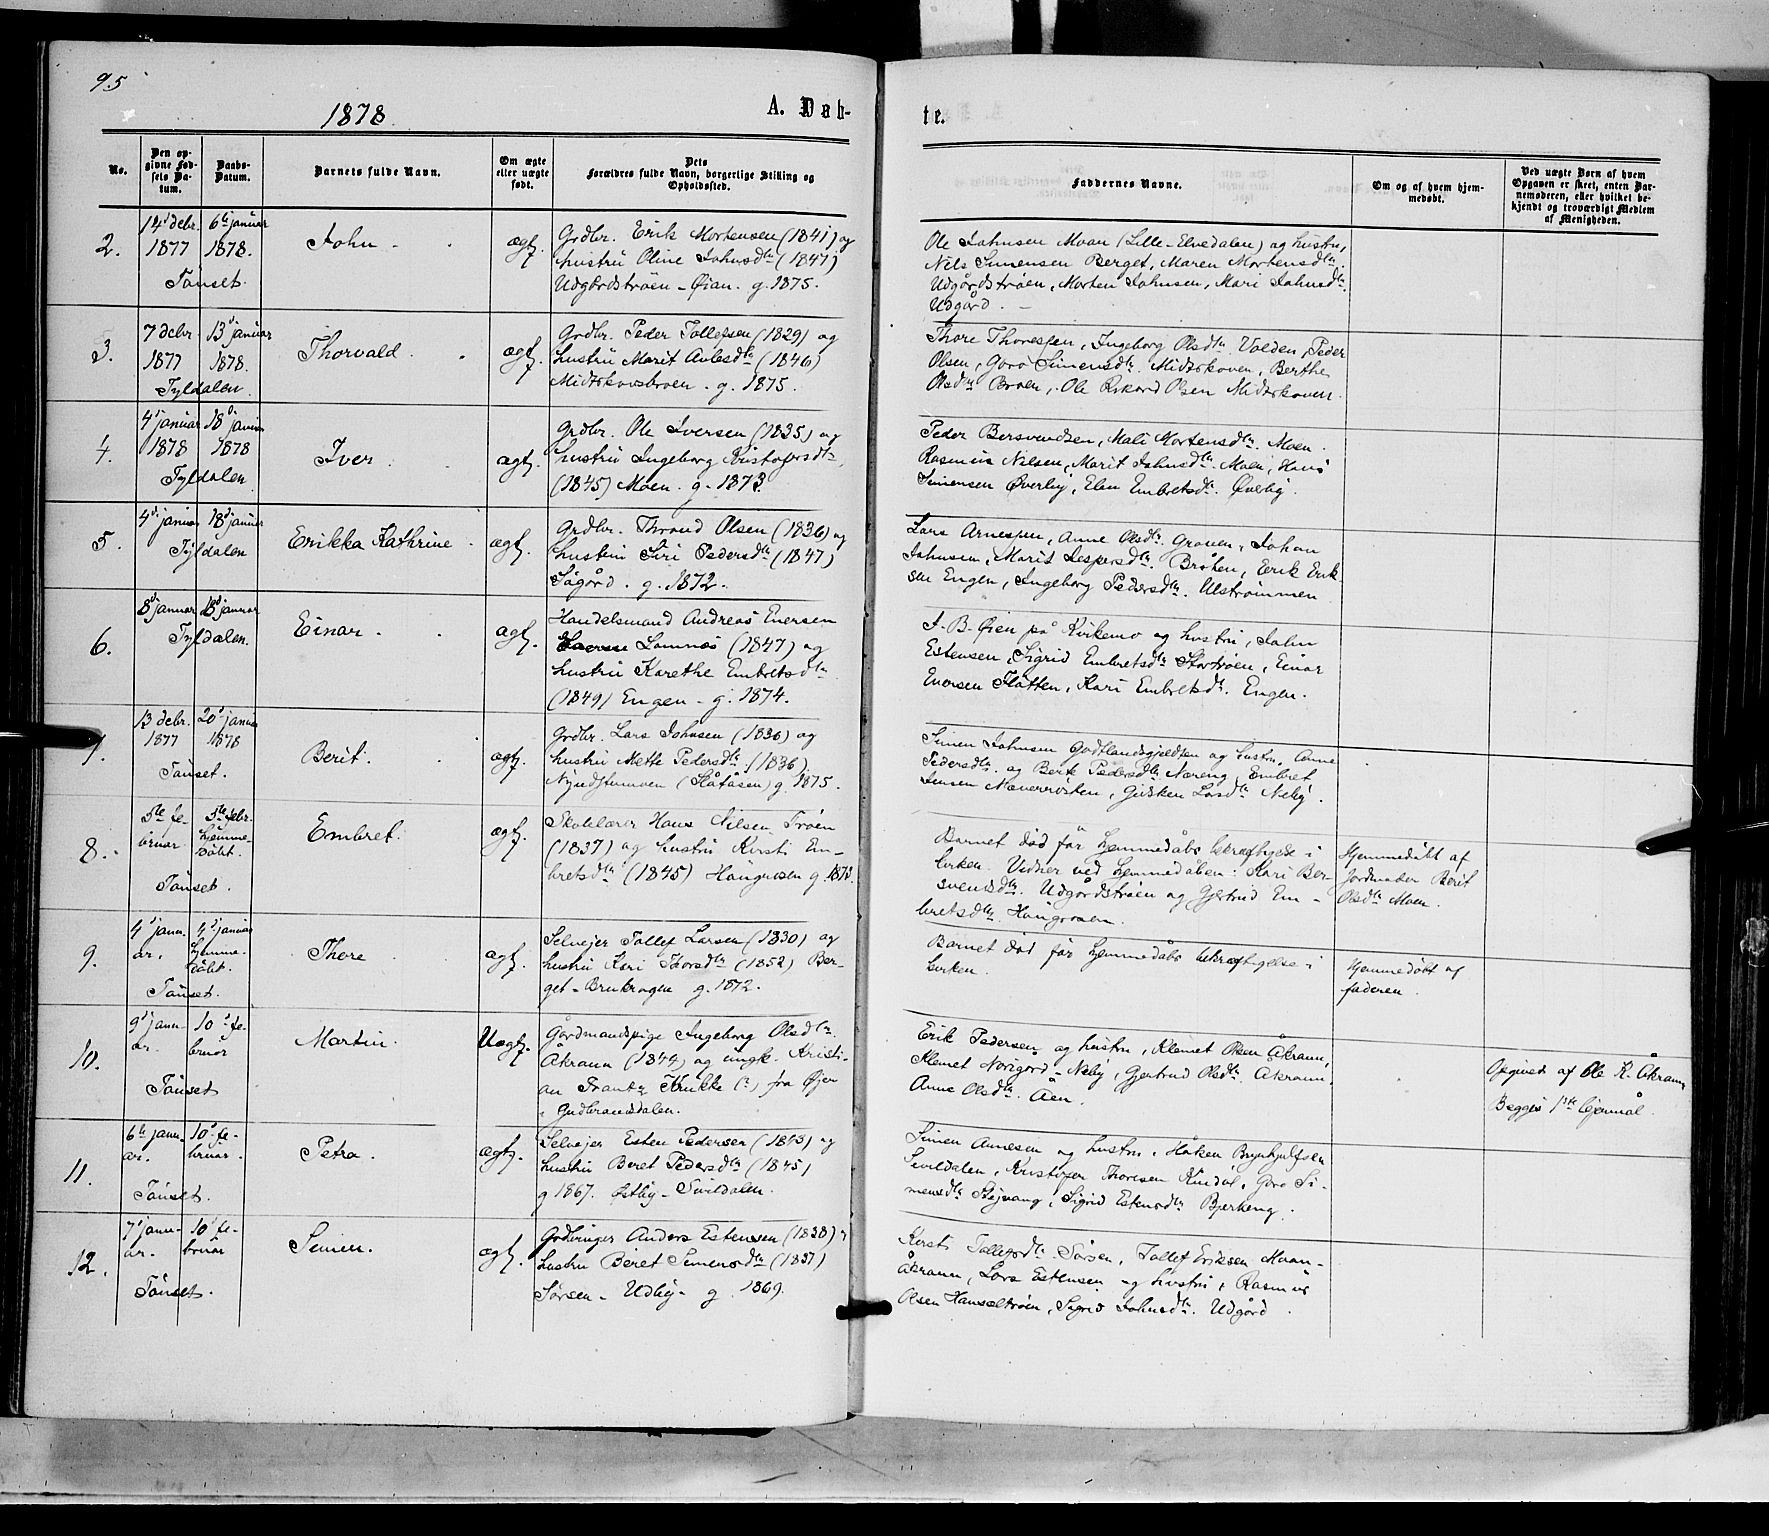 95
1878.
A. Døb-
te.
No.
Den op-
givne Fød-
sels Da-
tum.
Daabs-
Datum.
Barnets fulde Navn.
Om ægte
eller uægte
født.
Dets
Forældres fulde Navn, borgerlige Stilling og
Opholdssted.
Faddernes Navne.
Om og af hvem hjem-
medøbt.
Ved uægte Børn af hvem
Opgaven er skeet, enten Bar-
nemoderen, eller hvilket be-
kjendt og troværdigt Medlem
af Menigheden.
2.
14d debr.
1877
6te januar
1878.
Tønset.
John
ægt.
Grdbr. Erik Mortensen (1841) og
hustru Oline Johnsdtr (1847)
Udgårdstrøen - Øian. g. 1875.
Ole Johnsen Moan (Lille-Elvedalen) og hustru,
Nels Simensen Berget, Maren Mortensdtr
Udgårdstrøen, Morten Johnsen, Mari Johnsdtr
Udgård.
3.
7 debr
1877
13d januar
1878.
Tyldalen
Thorvald
ægt.
Grdbr. Peder Tollefsen (1829) og
hustru Marit Avlesdtr (1846)
Midtskovsbroen. g. 1875.
Thore Thoresen, Ingeborg Olsdtr. Volden, Peder
Olsen, Goro Simensdtr. Midtskoven, Berthe
Olsdtr Broen, Ole Rikard Olsen Midtskoven
4.
4d januar
1878
18d januar
1878
Tyldalen
Iver
ægt.
Grdbr. Ole Iversen (1835) og
hustru Ingeborg Kristofersdtr.
(1845) Moen. g. 1873.
Peder Bersvendsen, Mali Mortensdtr. Moen.
Rasmus Nilsen, Marit Johnsdtr. Moen, Hans
Simensen Øverby, Elen Embretsdtr. Øverby.
5.
4d januar
18d januar
Tyldalen
Erikka Kathrine
ægt.
Grdbr. Thrond Olsen (1836) og
hustru Siri Pedersdtr (1847)
Sågård. g. 1872.
Lars Arnesen, Anne Olsdtr. Graven, Johan
Johnsen, Marit Jespersdtr. Bråten, Erik Erik
sen Engen, Ingeborg Pedersdtr. Ulstrømmen
6.
8d januar
18d januar
Tyldalen.
Einar
ægt.
Handelsmand Andreas Enersen
Lomnæs (1847) og
hustru Karethe Embretsdtr
(1849) Engen - g. 1874.
J. B. Øien på Kvikemo og hustru, John
Estensen, Sigrid Embretsdtr Stortrøen, Einar
Enersen Flatten, Kari Embretsdtr. Engen.
7.
13 debr.
1877
20d januar
1878
Tønset.
Berit.
ægt.
Grdbr. Lars Johnsen (1836) og
hustru Mette Pedersdtr (1836)
(Slåtåsen) g. 1875.
Simen Johnsen og hustru, Anne
Pedersdtr. og Berit Pedersdtr Næreng, Embret
Jensen, Larsdtr Neby.
8.
5te fe-
bruar
5te febr.
hjemme-
døbt.
Tønset.
Embret.
ægt.
Skolelærer Hans Nilsen Trøen
(1837) og hustru Kirsti Em-
bretsdtr (1845) Haugrosen g. 1878.
Barnet død før hjemmedåbs bekræftigelse i
kirken. Vidner ved hjemmedåben: Kari Ber-
svendsdtr. Udgårdstrøen og Gjertrud Em-
bretsdtr. Haugrosen.
Hjemmedøbt af
Jordmoder Berit
Olsdtr Moen.
9.
4d janu-
ar.
4d januar
hjemme-
døbt.
Tønset.
Thore
ægt.
Selveier Tollef Larsen (1830) og
hustru Kari Thorsdtr (1852) Ber-
get - Brukragen g. 1872.
Barnet død før hjemmedåbs bekræftigelse i
kirken.
Hjemmedøbt af
faderen.
10.
9d janu-
ar.
10d fe-
bruar
Tønset
Martin.
Uægt.
Gårdmandspige Ingeborg Olsdtr.
Åkrann (1844) og ungk. Kristi-
an Frantz Krukke (?) fra Øyer
i Gudbrandsdalen.
Erik Pedersen og hustru, Klemet Olsen Åkrann,
Klemet Norigard - Neby, Gjertrud Olsdtr. Åkrann.
Anne Olsdtr. Åen.
Opgivet af Ole K. Åkrann
Begges 1ste leiermål.
11.
6te janu-
ar.
10d fe-
bruar.
Tønset.
Petra.
ægt.
Selveier Esten Pedersen (1843) og
hustru Beret Pedersdtr (1845)
g 1867. Østby - Tvildalen.
Simen Arnesen og hustru, Håken Brynhjulfsen
Tvildalen, Kristofer Thoresen Kindal, Goro Si-
mensdtr Stejvang, Sigrid Estensdtr Bjerkeng.
12.
7d janu-
ar.
10d fe-
bruar
Tønset.
Simen.
ægt.
Grdbruger Anders Estensen (1838) og
hustru Beret Simensdtr (1837)
Sørsen - Udby - g. 1869.
Kirsti Tollefsdtr. Sørsen, Tollef Eriksen Moan-
Åkrann, Lars Estensen og hustru, Rasmus
Olsen Hanseltrøen, Sigrid Johnsdtr. Udgård.